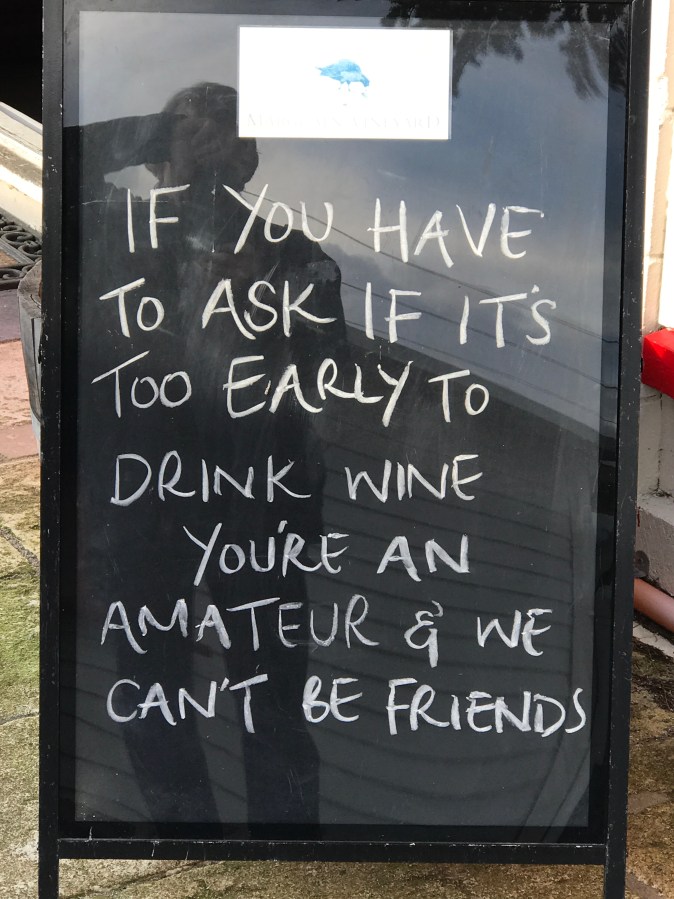 IF YOU HAVE
TO ASK IF IT'S
TOO EARLY TO
DRINK WINE
YOU'RE AN
AMATEUR & WE
CAN'T BE FRIENDS